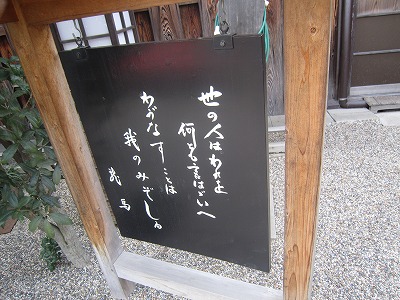 世の人はわれを
何とも言はゞいへ
わがなすことは
我のみぞしる
龍馬